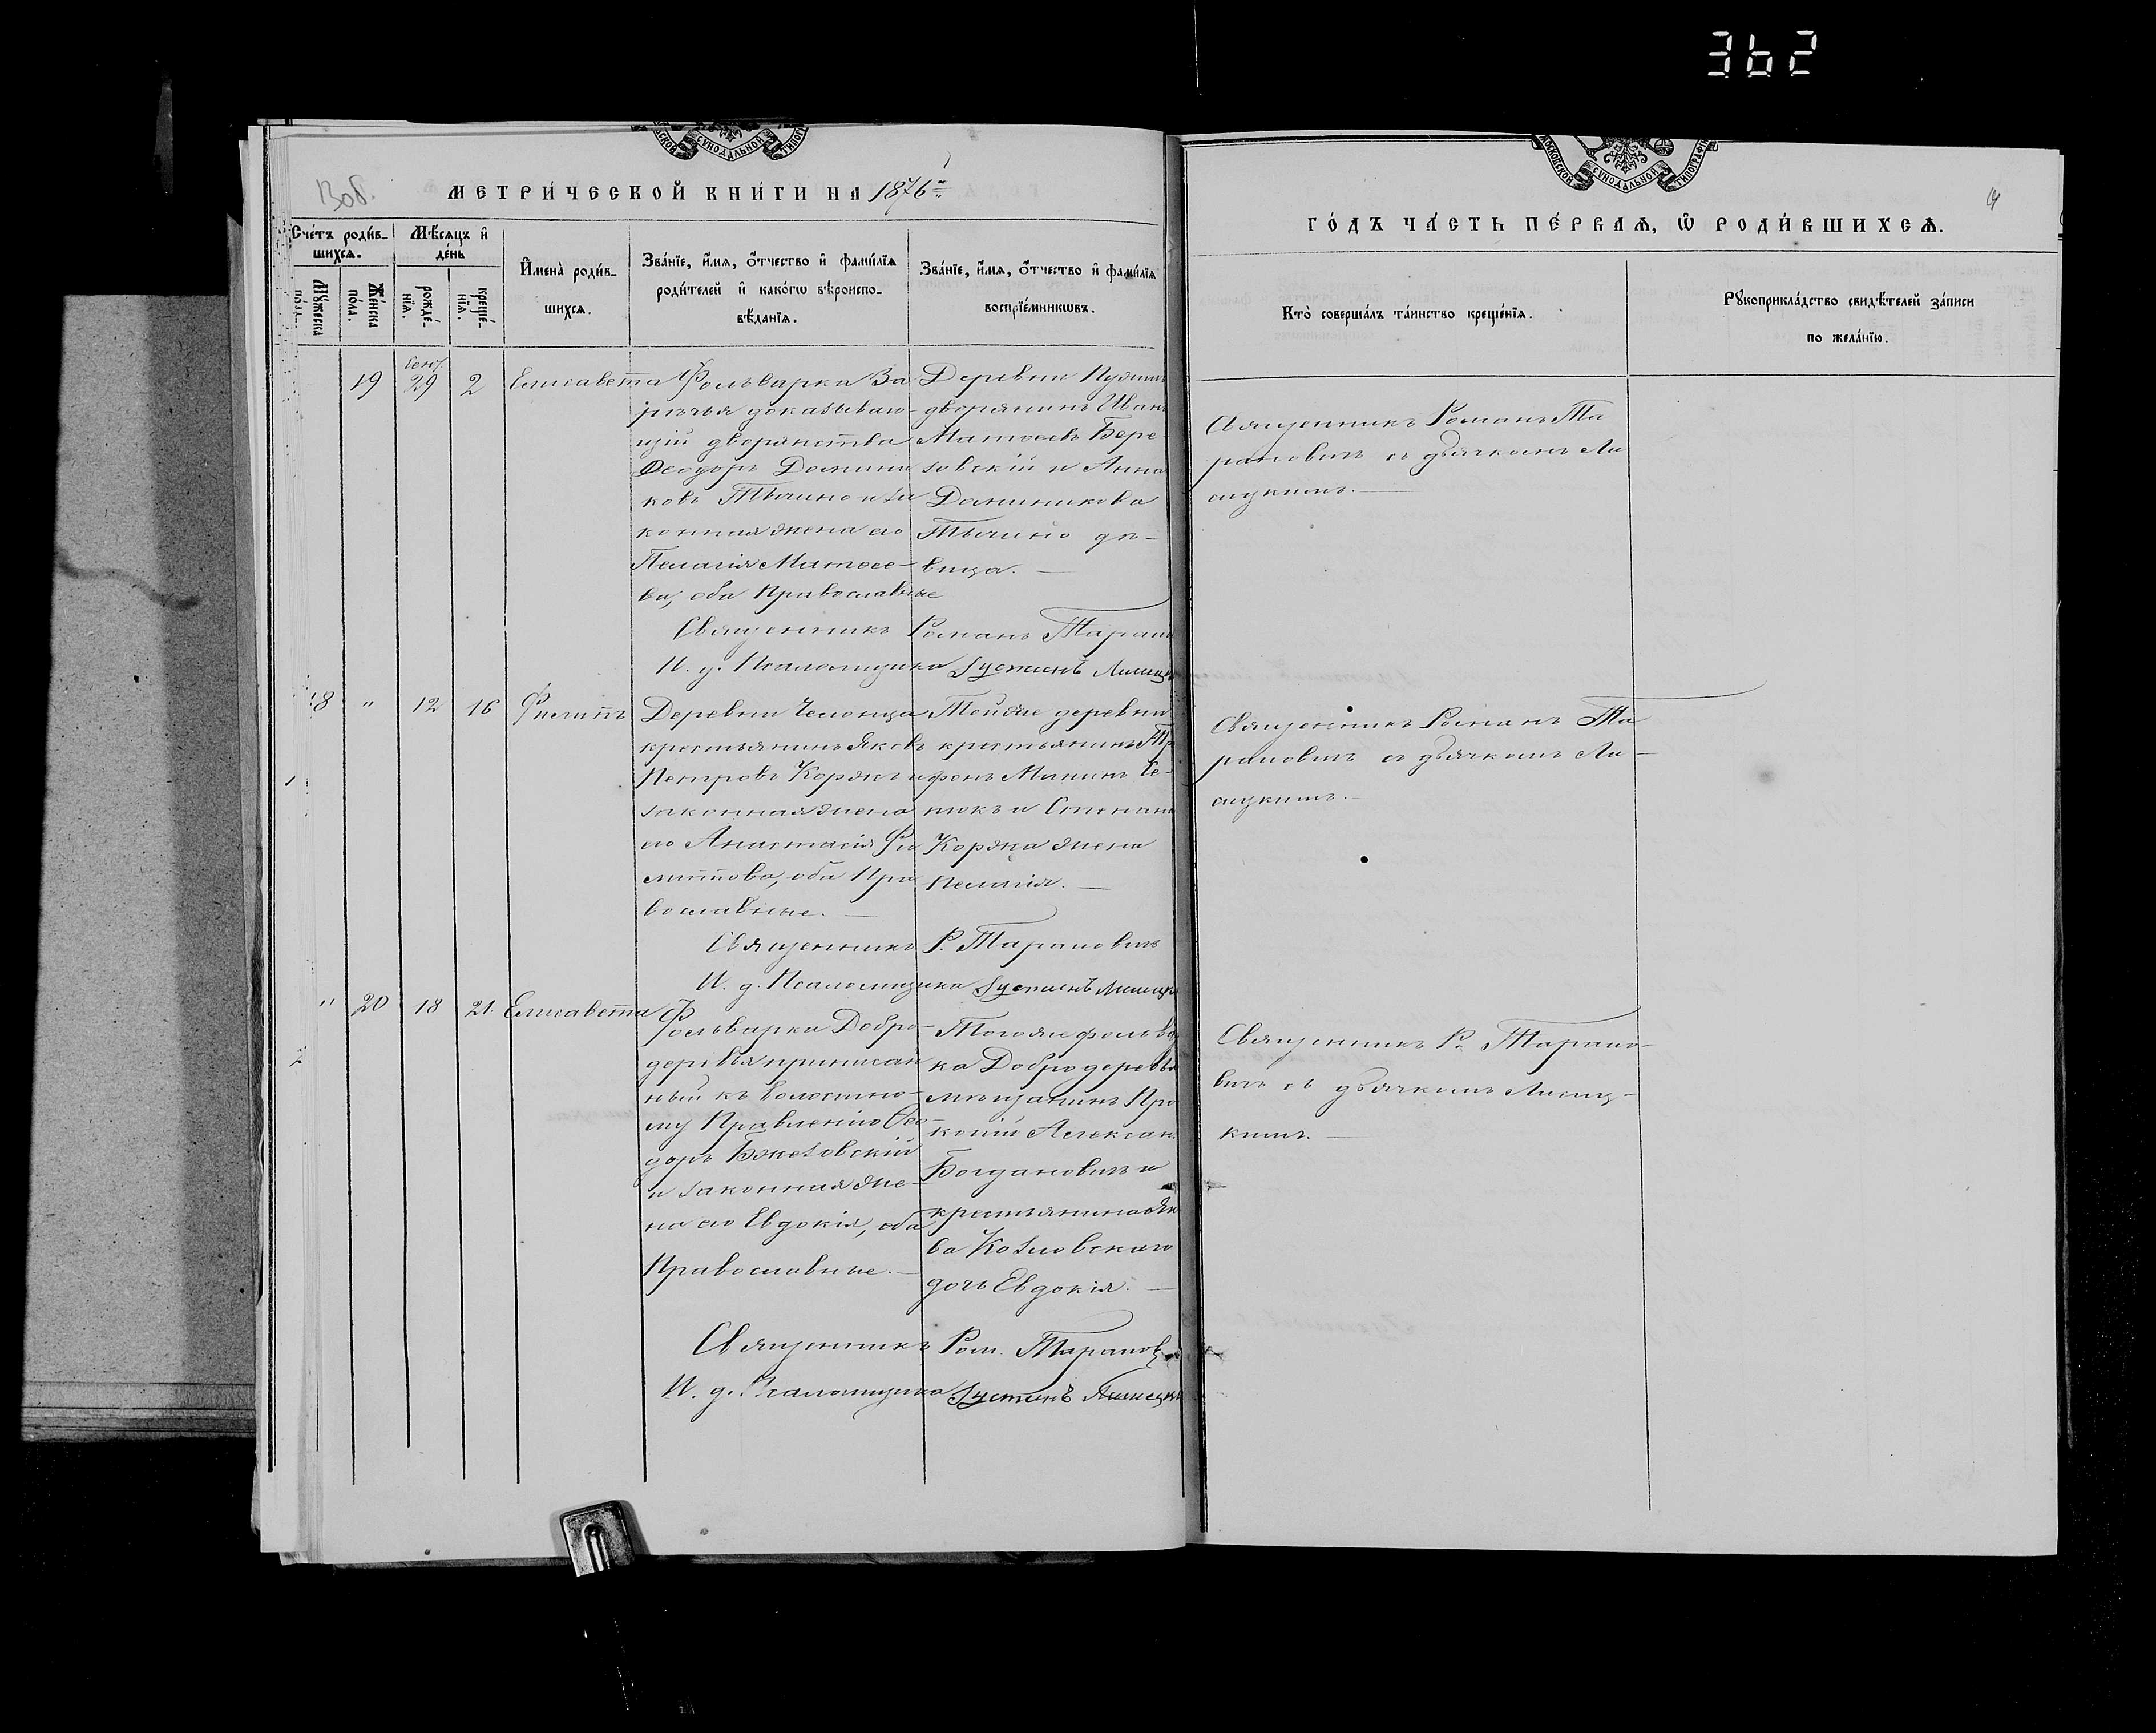 362
МОСКОВСКОЙ СѴНОДАЛЬНОЙ ТИПОГРАФІИ
13об.
МЕТРИ́ЧЕСКОЙ КНИ́ГИ НА 1876
14
ГО́ДЪ ЧА́СТЬ ПЕ́РВАѦ, Ѡ РОДИ́ВШИХСѦ.
Сче́тъ роди́в-
шихсѧ.
Мꙋ́жеска
по́ла.
Же́нска
по́ла.
Мѣ́сѧцъ и҆
де́нь
рожде́-
нїѧ.
креще́-
нїѧ.
И҆мена̀ роди́в-
шихсѧ.
Зва́нїе, и҆́мѧ, ѻ҆́тчество и҆ фами́лїѧ
роди́телей и҆ како́гѡ вѣроиспо-
вѣ́данїѧ.
Зва́нїе, и҆́мѧ, ѻ҆́тчество и҆ фами́лїѧ
воспрїе́мникѡвъ.
Кто̀ соверша́лъ та́инство креще́нїѧ.
Рꙋкоприкла́дство свидѣ́телей за́писи
по жела́нїю.
19
29
2
Елисавета
Фольварка За
рѣчья доказываю-
щій дворянства
Ѳеодоръ Домини
ковъ Тычино и за
конная жена его
Пелагія Матѳее-
ва, оба Православные
Деревни
дворянинъ Иванъ
Матѳеевъ Бере-
зовскій и Анна
Доминикова
Тычино дѣ-
вица.
Священникъ Романъ Та
рановичъ съ дьячкомъ Ли
сицкимъ.
Священникъ Романъ Таран
И. д. Псаломщика Іустинъ Лисицк
18 " 12 16 Филиппъ
Деревни
крестьянинъ Яковъ
Петровъ Коржъ и
законная жена
его Анастасія Фи
липпова, оба Пра
вославные.
Тойже деревни
крестьянинъ Тр
фонъ Мининъ Се-
нюкъ и Степана
Коржа жена
Пелагія.
Священникъ Романъ Та
рановичъ съ дьячкомъ Ли-
сицкимъ.
Священникъ Р. Тарановичъ
И. д. Псаломщика Іустинъ Лисицк
" 20 18 21. Елисавета
Фольварка Добро-
деревья приписан
ный къ волостно-
му Правленію Ѳео-
доръ Бжезовскій
и законная же-
на его Евдокія, оба
Православные.
Тогоже фольвар
ка Добродеревья
мѣщанинъ Про
копій Александ.
Богдановичъ и
крестьянина Як
ва Козловскаго
дочь Евдокія.
Священникъ Р. Тарано-
вичъ съ дьячкомъ Лисиц-
кимъ.
Священникъ Ром. Таранов
И. д. Псаломщика Іустинъ Лисицк